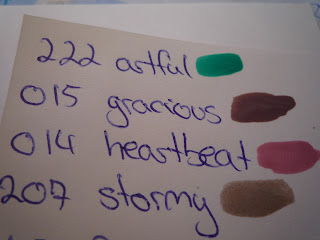 222 artful
015 gracious
014 heartbeat
207 stormy